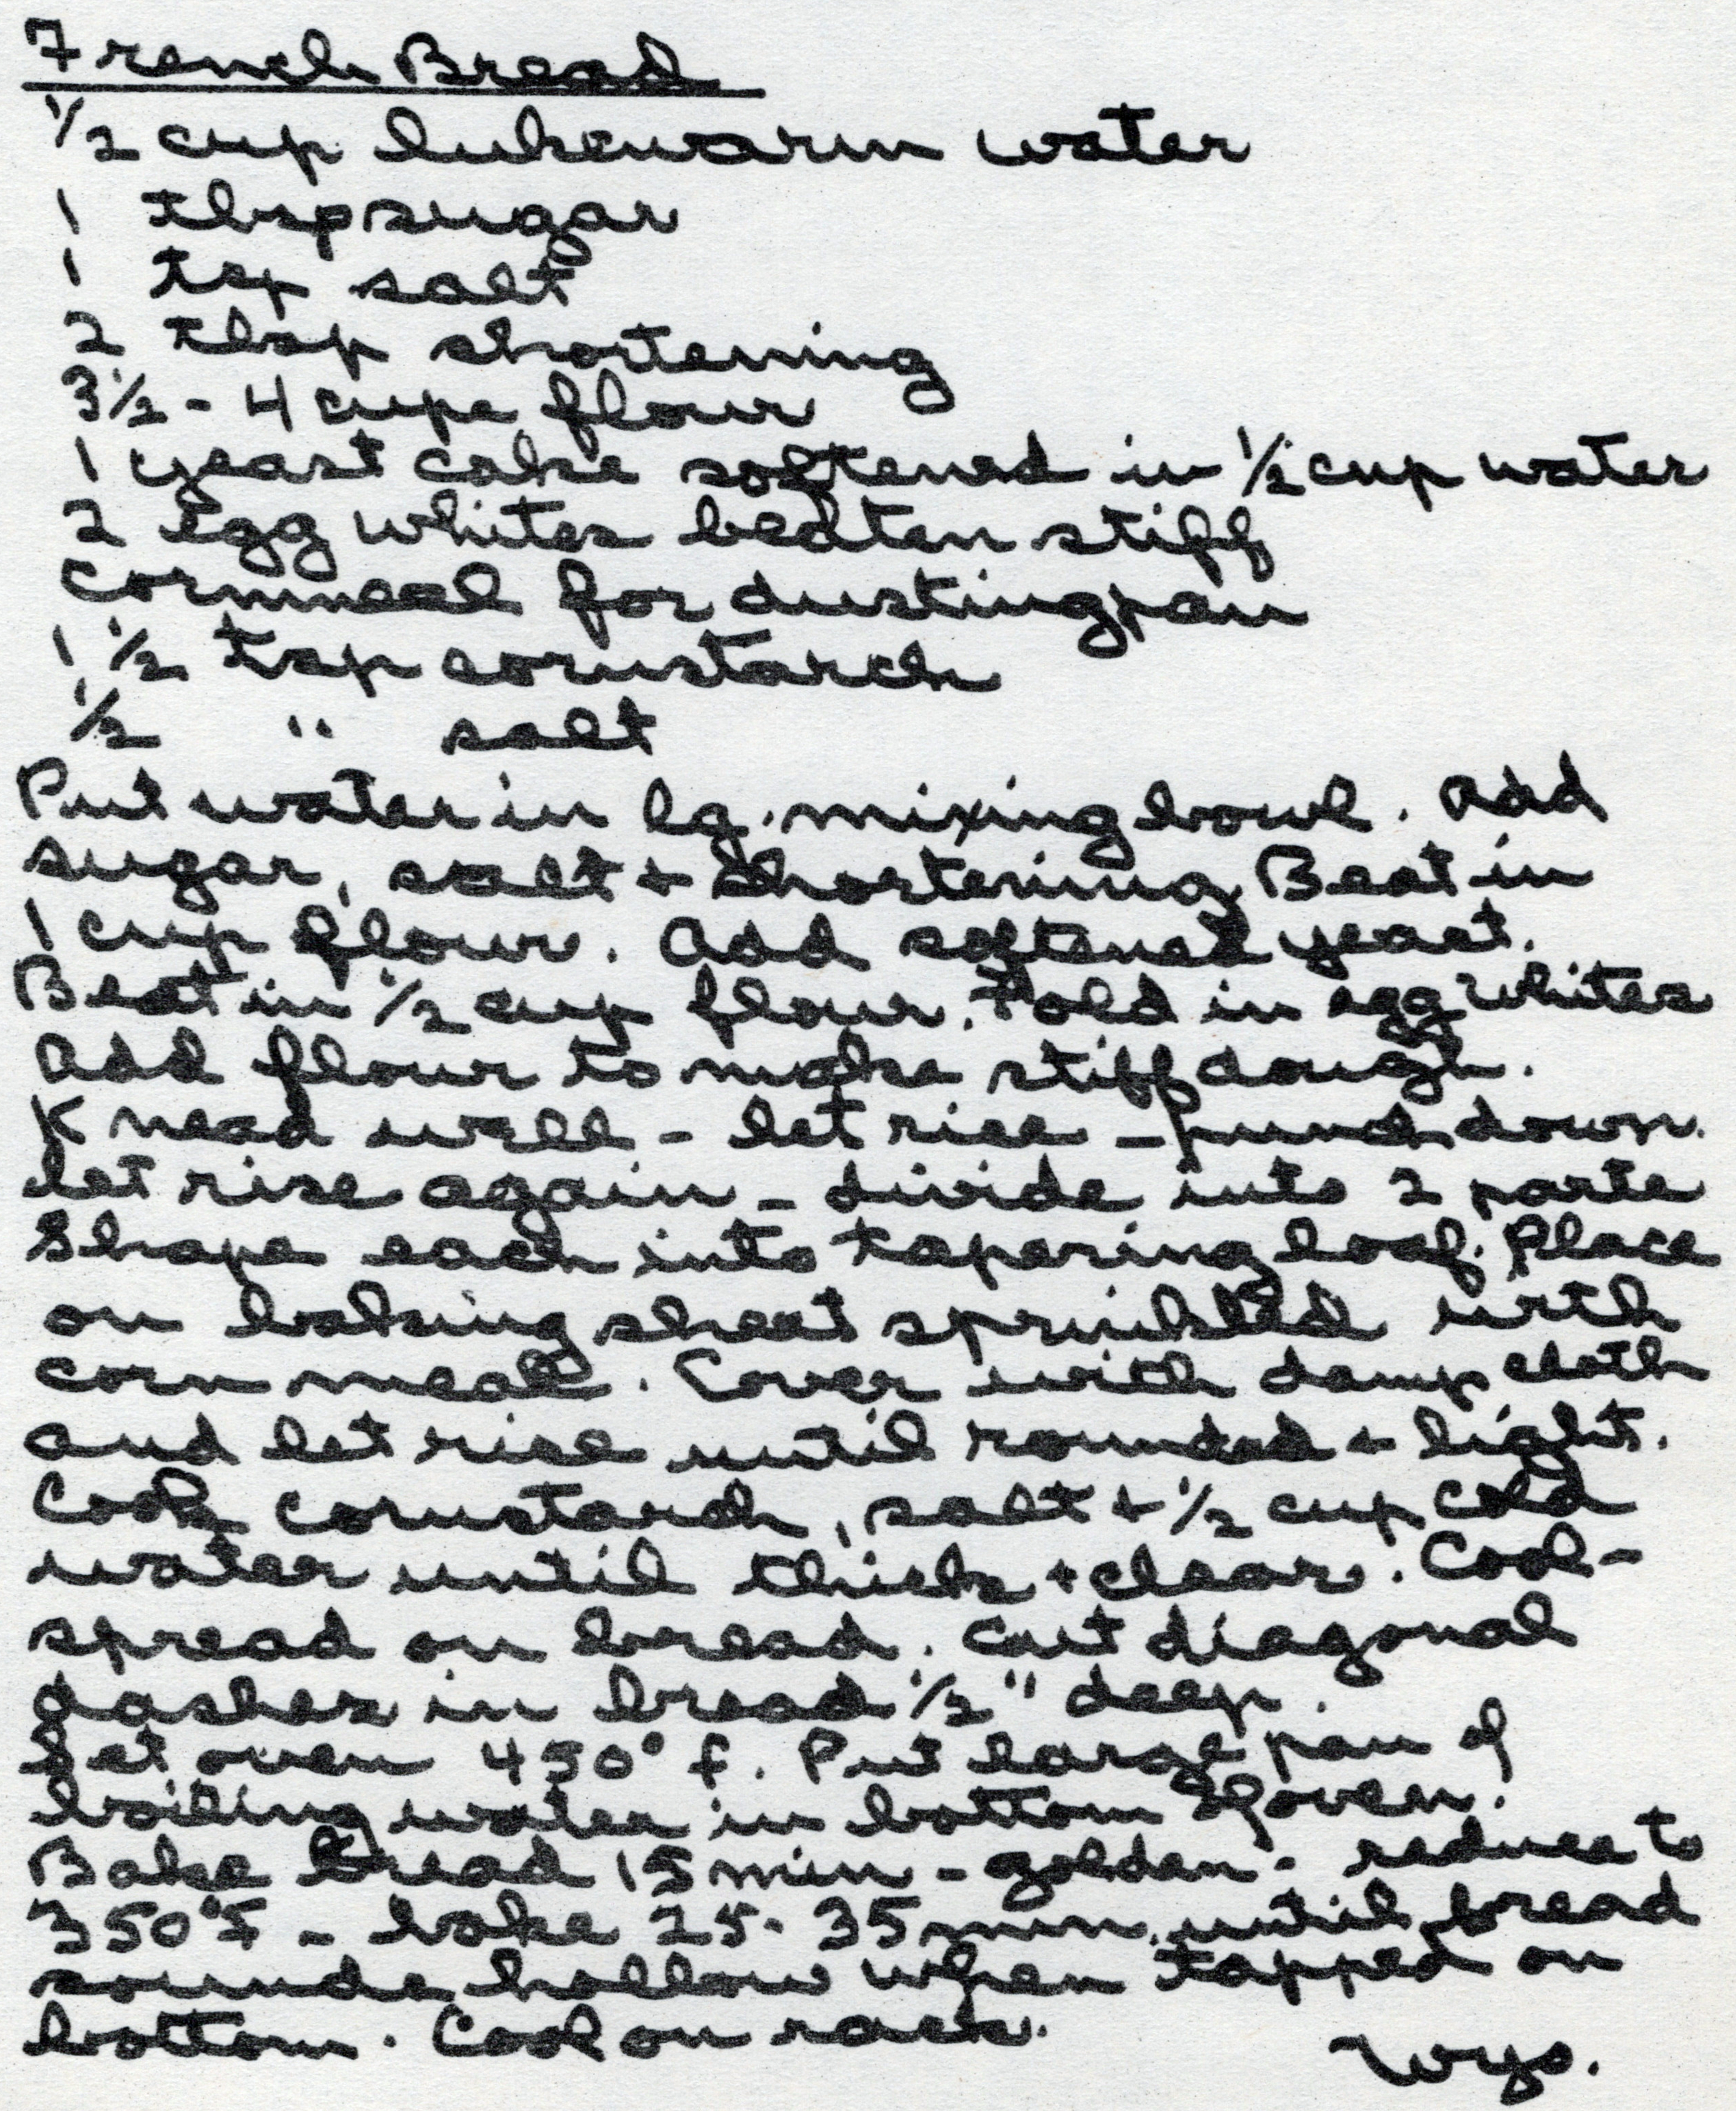 French Bread
1/2 cup lukewarm water
1 tbsp sugar
1 tsp salt
2 tbsp shortening
3 1/2 - 4 cups flour
1 yeast cake softened in 1/2 cup water
2 egg whites beaten stiff
Cornmeal for dusting pan
1 1/2 tsp cornstarch
1/2 " salt
Put water in lg. mixing bowl. Add
sugar, salt + shortening. Beat in
1 cup flour. Add softened yeast.
Beat in 1/2 cup flour. Fold in egg whites
Add flour to make stiff dough.
Knead well - let rise - punch down.
Let rise again - divide into 2 parts
Shape each into tapering loaf. Place
on baking sheet sprinkled with
corn meal. Cover with damp cloth
and let rise until rounded + light.
Cook cornstarch, salt + 1/2 cup cold
water until thick + clear. Cool -
spread on bread. Cut diagonal
gashes in bread 1/2" deep.
Set oven 450° f. Put large pan of
boiling water in bottom of oven.
Bake bread 15 min - golden - reduce to
350°F - bake 25-35 min. until bread
sounds hollow when tapped on
bottom. Cool on rack.
Wyo.